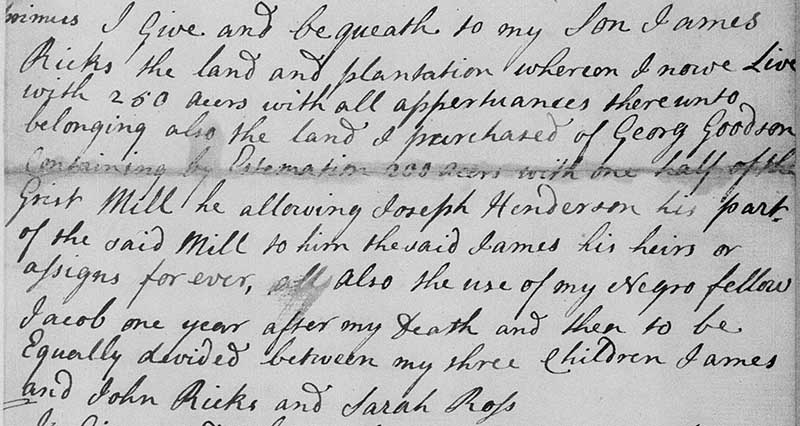 I Give and bequeath to my Son James
Ricks the land and plantation whereon I nowe Live
with 250 acers with all appertuances thereunto
belonging also the land I purchased of Georg Goodson
Containing by Estemation 200 acers with one half of the
Grist Mill he allowing Joseph Henderson his part
of the said Mill to him the said James his heirs or
assigns for ever, all also the use of my Negro fellow
Jacob one year after my Death and then to be
Equally devided between my three Children James
and John Ricks and Sarah Ross